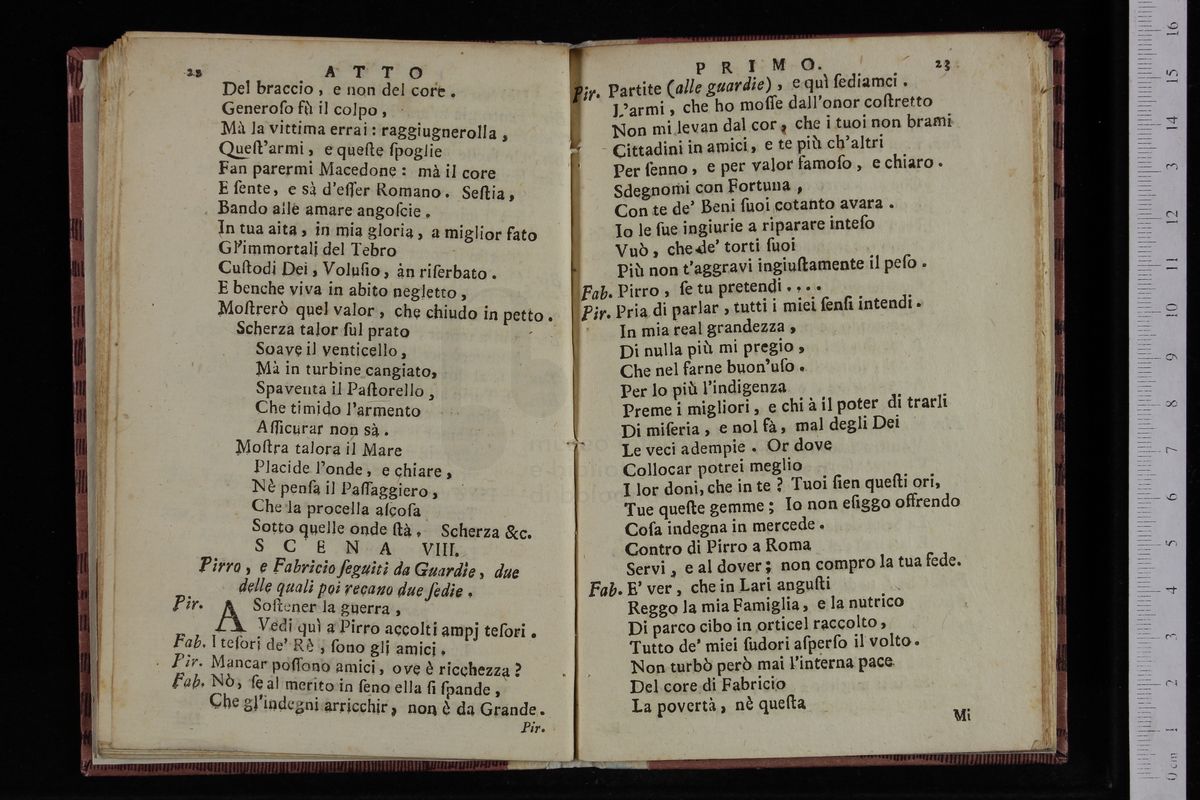 22 ATTO
Del braccio, e non del core.
Generoſo fù il colpo,
Mà la vittima errai: raggiugnerolla,
Queſt'armi, e queſte ſpoglie
Fan parermi Macedone: mà il core
E ſente, e sà d'eſſer Romano. Seſtia,
Bando alle amare angoſcie.
In tua aita, in mia gloria, a miglior fato
Gl'immortali del Tebro
Cuſtodi Dei, Voluſio, àn riſerbato.
E benche viva in abito negletto,
Moſtrerò quel valor, che chiudo in petto.
Scherza talor ſul prato
Soave il venticello,
Mà in turbine cangiato,
Spaventa il Paſtorello,
Che timido l'armento
Aſſicurar non sà.
Moſtra talora il Mare
Placide l'onde, e chiare,
Nè penſa il Paſſaggiero,
Che la procella aſcoſa
Sotto quelle onde ſtà. Scherza &c.
SCENA VIII.
Pirro, e Fabricio ſeguiti da Guardie, due
delle quali poi recano due ſedie.
Pir. A Soſtener la guerra,
Vedi quì a Pirro accolti ampj teſori.
Fab. I teſori de' Rè, ſono gli amici.
Pir. Mancar poſſono amici, ove è ricchezza?
Fab. Nò, ſe al merito in ſeno ella ſi ſpande,
Che gl'indegni arricchir, non è da Grande.
Pir.
PRIMO. 23
Pir. Partite (alle guardie), e quì ſediamci.
L'armi, che ho moſſe dall'onor coſtretto
Non mi levan dal cor, che i tuoi non brami
Cittadini in amici, e te più ch'altri
Per ſenno, e per valor famoſo, e chiaro.
Sdegnomi con Fortuna,
Con te de' Beni ſuoi cotanto avara.
Io le ſue ingiurie a riparare inteſo
Vuò, che de' torti ſuoi
Più non t'aggravi ingiuſtamente il peſo.
Fab. Pirro, ſe tu pretendi....
Pir. Pria di parlar, tutti i miei ſenſi intendi.
In mia real grandezza,
Di nulla più mi pregio,
Che nel farne buon'uſo.
Per lo più l'indigenza
Preme i migliori, e chi à il poter di trarli
Di miſeria, e nol fà, mal degli Dei
Le veci adempie. Or dove
Collocar potrei meglio
I lor doni, che in te? Tuoi ſien queſti ori,
Tue queſte gemme; Io non eſiggo offrendo
Coſa indegna in mercede.
Contro di Pirro a Roma
Servi, e al dover; non compro la tua fede.
Fab. E' ver, che in Lari anguſti
Reggo la mia Famiglia, e la nutrico
Di parco cibo in orticel raccolto,
Tutto de' miei ſudori aſperſo il volto.
Non turbò però mai l'interna pace
Del core di Fabricio
La povertà, nè queſta
Mi